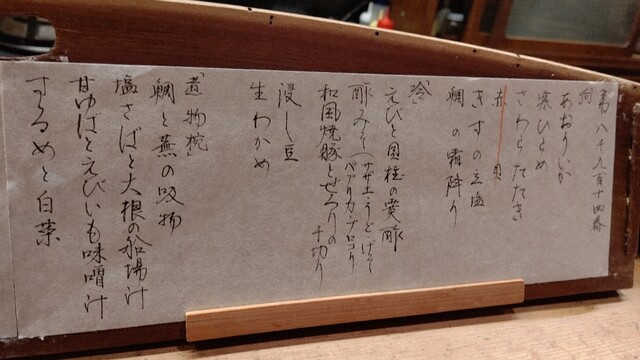 第八千九百十四番
向
あおりいか
寒ひらめ
さわらたたき
赤貝
きすの立塩
鯛の霜降り
(冷)
えびと貝柱の黄酢
酢みそ(サザエうどげそ
パプリカブロッコリ
和風焼豚とせろりの
千切り
浸し豆
生わかめ
(煮物椀)
鯛と蕪の吸物
塩さばと大根の船場汁
甘ゆばとえびいも味噌汁
するめと白菜